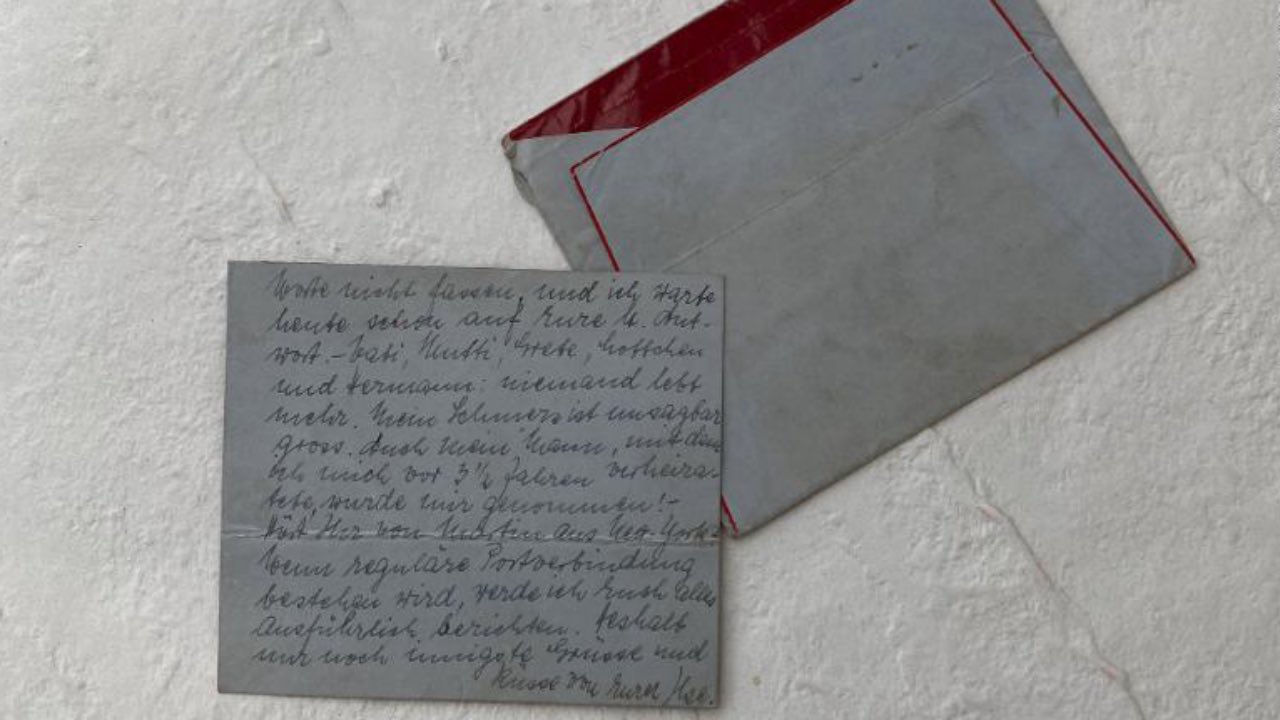 Worte nicht fassen, und ich warte
heute schon auf Eure l. Ant-
wort. – Vati, Mutti, Grete, Lottchen
und Hermann: niemand lebt
mehr. Mein Schmerz ist unsagbar
gross. Auch mein Mann, mit dem
ich mich vor 3½ Jahren verheira-
tete, wurde mir genommen! –
Hört Ihr von Martin aus New-York.–
Wenn reguläre Postverbindung
bestehen wird, werde ich Euch alles
ausführlich berichten. Deshalb
nur noch innigste Grüsse und
Küsse von Eurer Ilse.